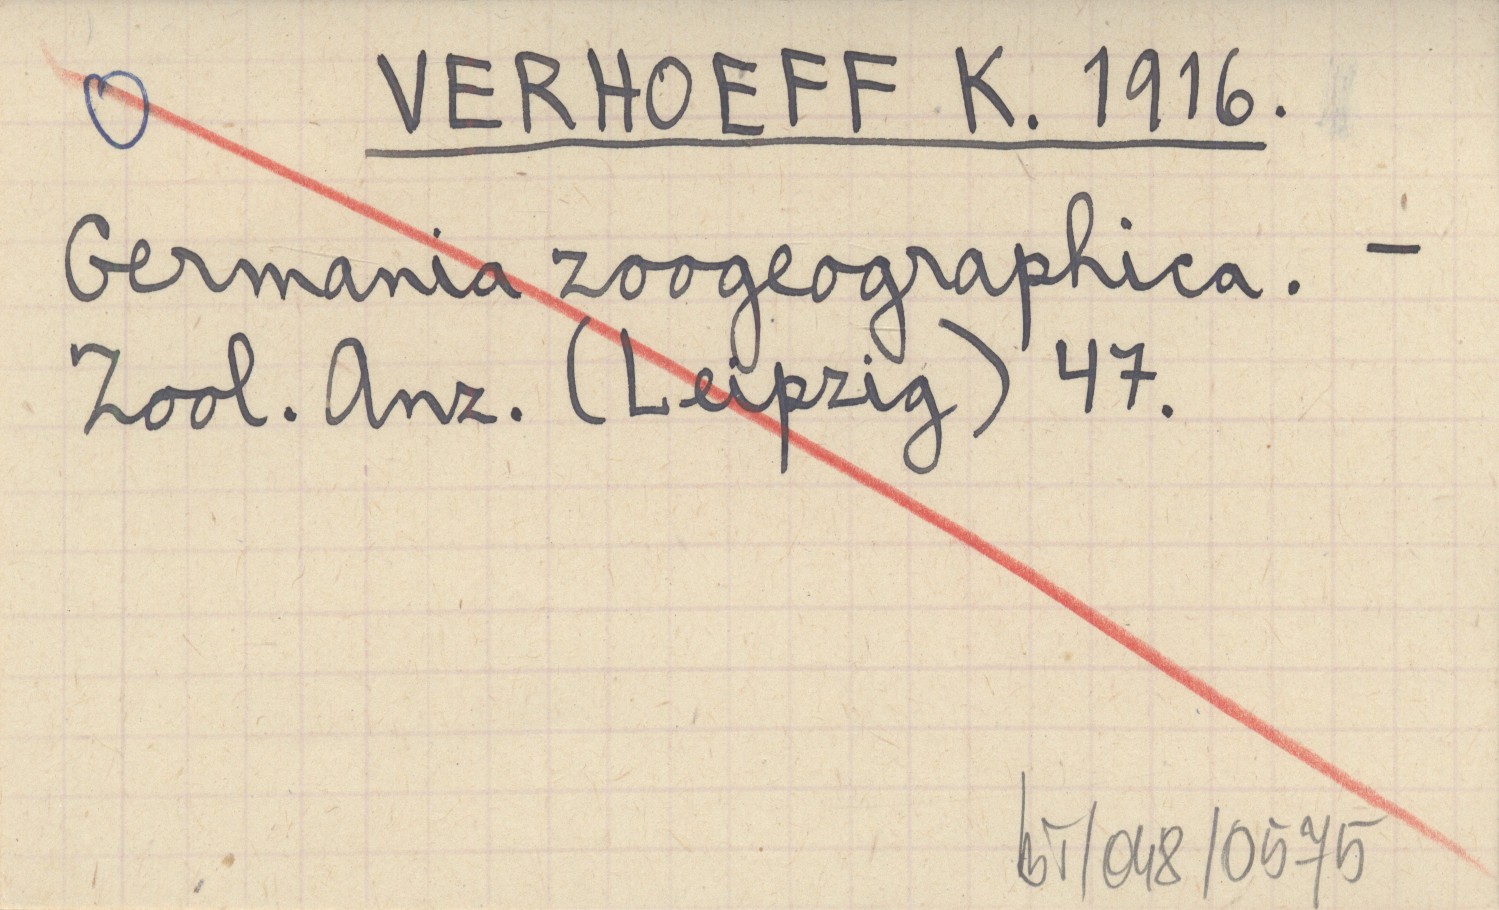 VERHOEFF K. 1916.
Germania zoogeographica. –
Zool. Anz. (Leipzig) 47.
bT/048/0575